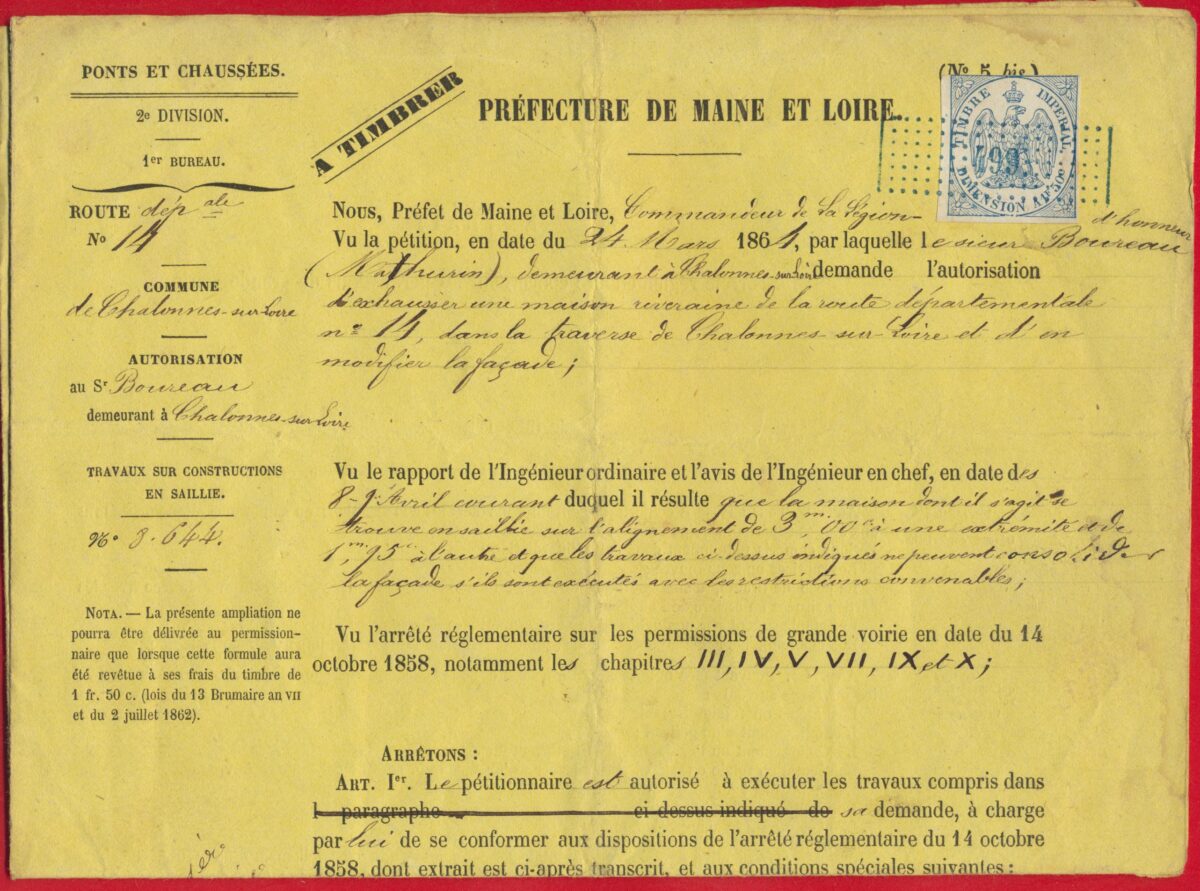 PONTS ET CHAUSSÉES.
2e DIVISION.
1er BUREAU.
ROUTE dép ale
No 14
COMMUNE
de Chalonnes-sur-Loire
AUTORISATION
au Sr Boureau
demeurant à Chalonnes-sur-Loire
TRAVAUX SUR CONSTRUCTIONS
EN SAILLIE.
No 3.644.
NOTA. — La présente ampliation ne
pourra être délivrée au permission-
naire que lorsque cette formule aura
été revêtue à ses frais du timbre de
1 fr. 50 c. (lois du 13 Brumaire an VII
et du 2 juillet 1862).
A TIMBRER
(No 5 bis)
PRÉFECTURE DE MAINE ET LOIRE.
TIMBRE IMPERIAL
DIMENSION 1F50c
Nous, Préfet de Maine et Loire, Commandeur de la Légion d'honneur
Vu la pétition, en date du 24 Mars 1864, par laquelle le sieur Boureau
(Mathurin), demeurant à Chalonnes-sur-Loire demande l'autorisation
d'exhausser une maison riveraine de la route départementale
no 14, dans la traverse de Chalonnes-sur-Loire et d'en
modifier la façade;
Vu le rapport de l'Ingénieur ordinaire et l'avis de l'Ingénieur en chef, en date des
8-9 Avril courant duquel il résulte que la maison dont il s'agit se
trouve en saillie sur l'alignement de 3m,00c à une extrémité et de
1m,75c à l'autre et que les travaux ci-dessus indiqués ne peuvent consolider
la façade s'ils sont exécutés avec les restrictions convenables;
Vu l'arrêté réglementaire sur les permissions de grande voirie en date du 14
octobre 1858, notamment les chapitres III, IV, V, VII, IX et X;
ARRÊTONS :
ART. Ier. Le pétitionnaire est autorisé à exécuter les travaux compris dans
l paragraphe ci-dessus indiqué de sa demande, à charge
par lui de se conformer aux dispositions de l'arrêté réglementaire du 14 octobre
1858, dont extrait est ci-après transcrit, et aux conditions spéciales suivantes :